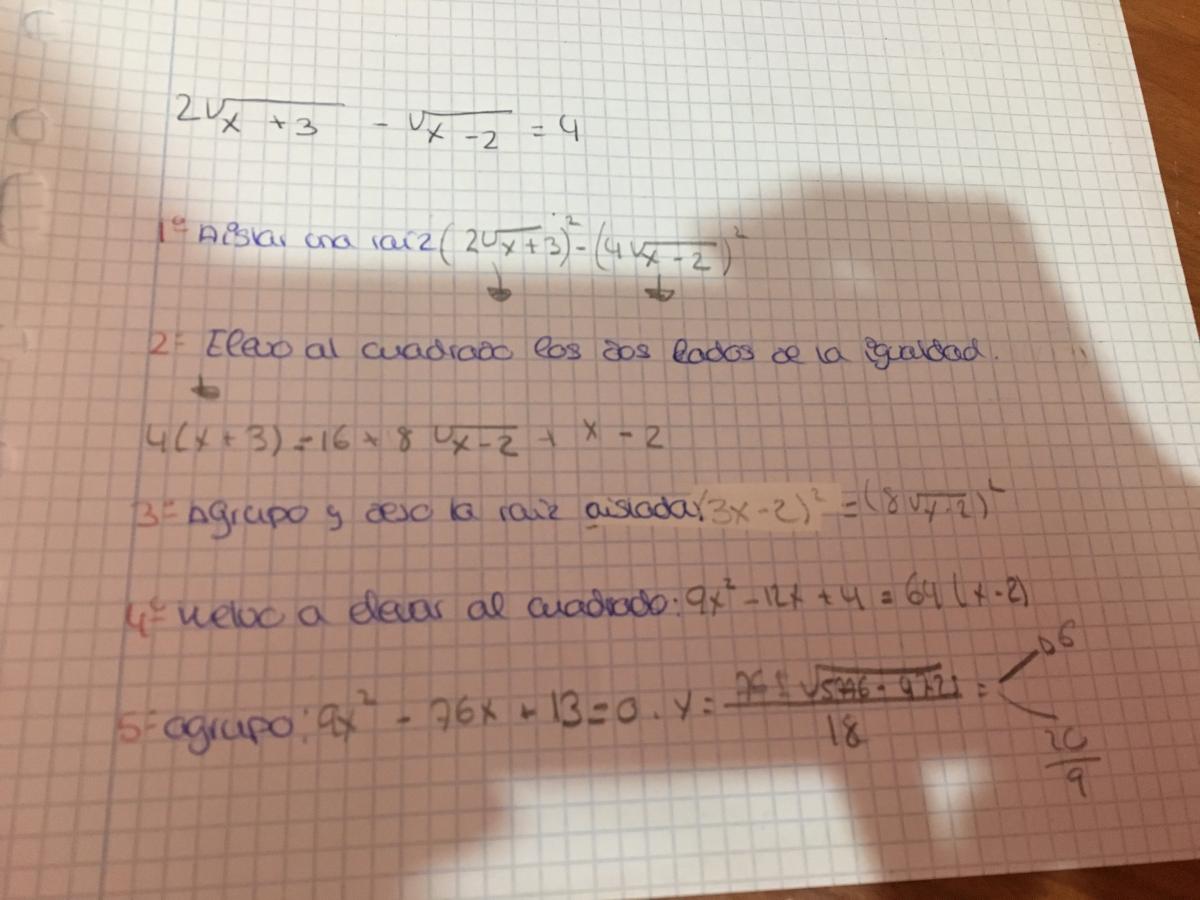 2√x + 3 - √x - 2 = 4
1º Aislar una raíz (2√x+3)² - (4√x - 2)²
2º Elevo al cuadrado los dos lados de la igualdad.
4(x + 3) = 16 + 8 √x-2 + x - 2
3º Agrupo y dejo la raíz aislada (3x-2)² = (8√x-2)²
4º Vuelvo a elevar al cuadrado: 9x² - 12x + 4 = 64 (x-2)
5º agrupo: 9x² - 76x + 13 = 0. = 6
18
20
9